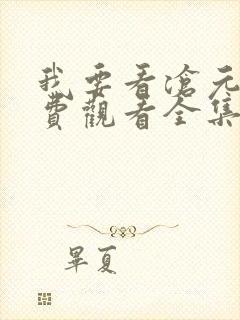 我要看滄元
費觀看全集
畢夏